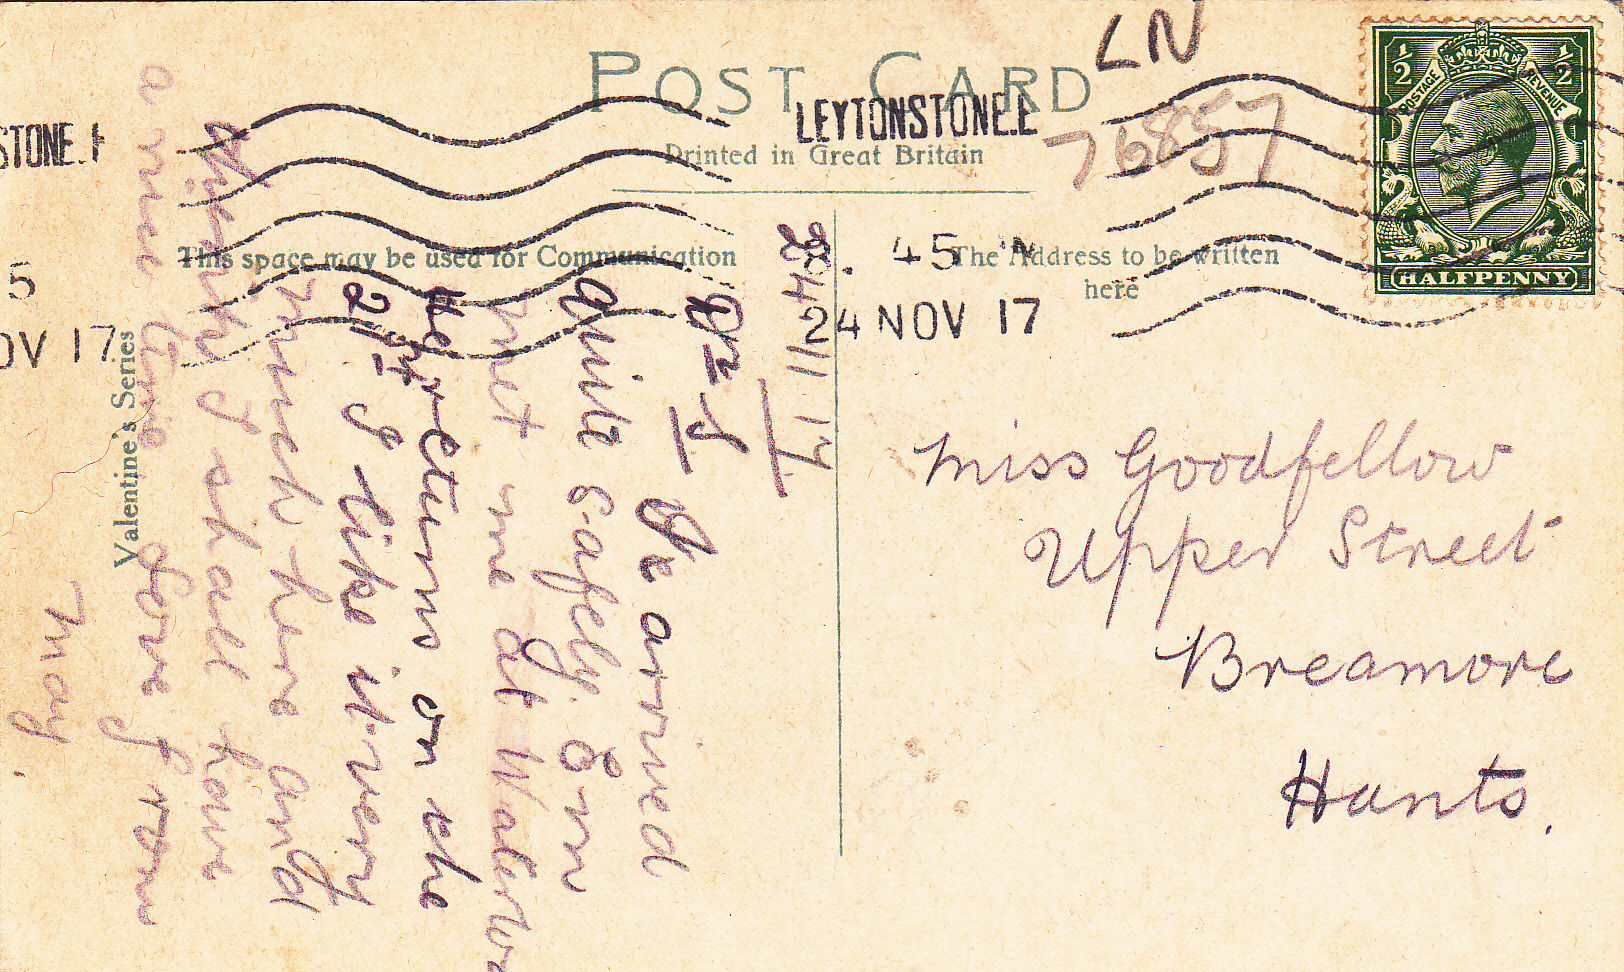 POST CARD
Printed in Great Britain
LN
76857
LEYTONSTONE.E
STONE. E
45
24 NOV 17
5
OV 17
POSTAGE REVENUE
½ ½
HALFPENNY
This space may be used for Communication
The Address to be written
here
Valentine's Series
24 11 17
Dr S
We arrved
quite safely. Em
met me at Waterloo
Her returns on the
2nd I like it very
much here and
think I shall have
a nice time
Love from
May.
Miss Goodfellow
Upper Street
Breamore
Hants.